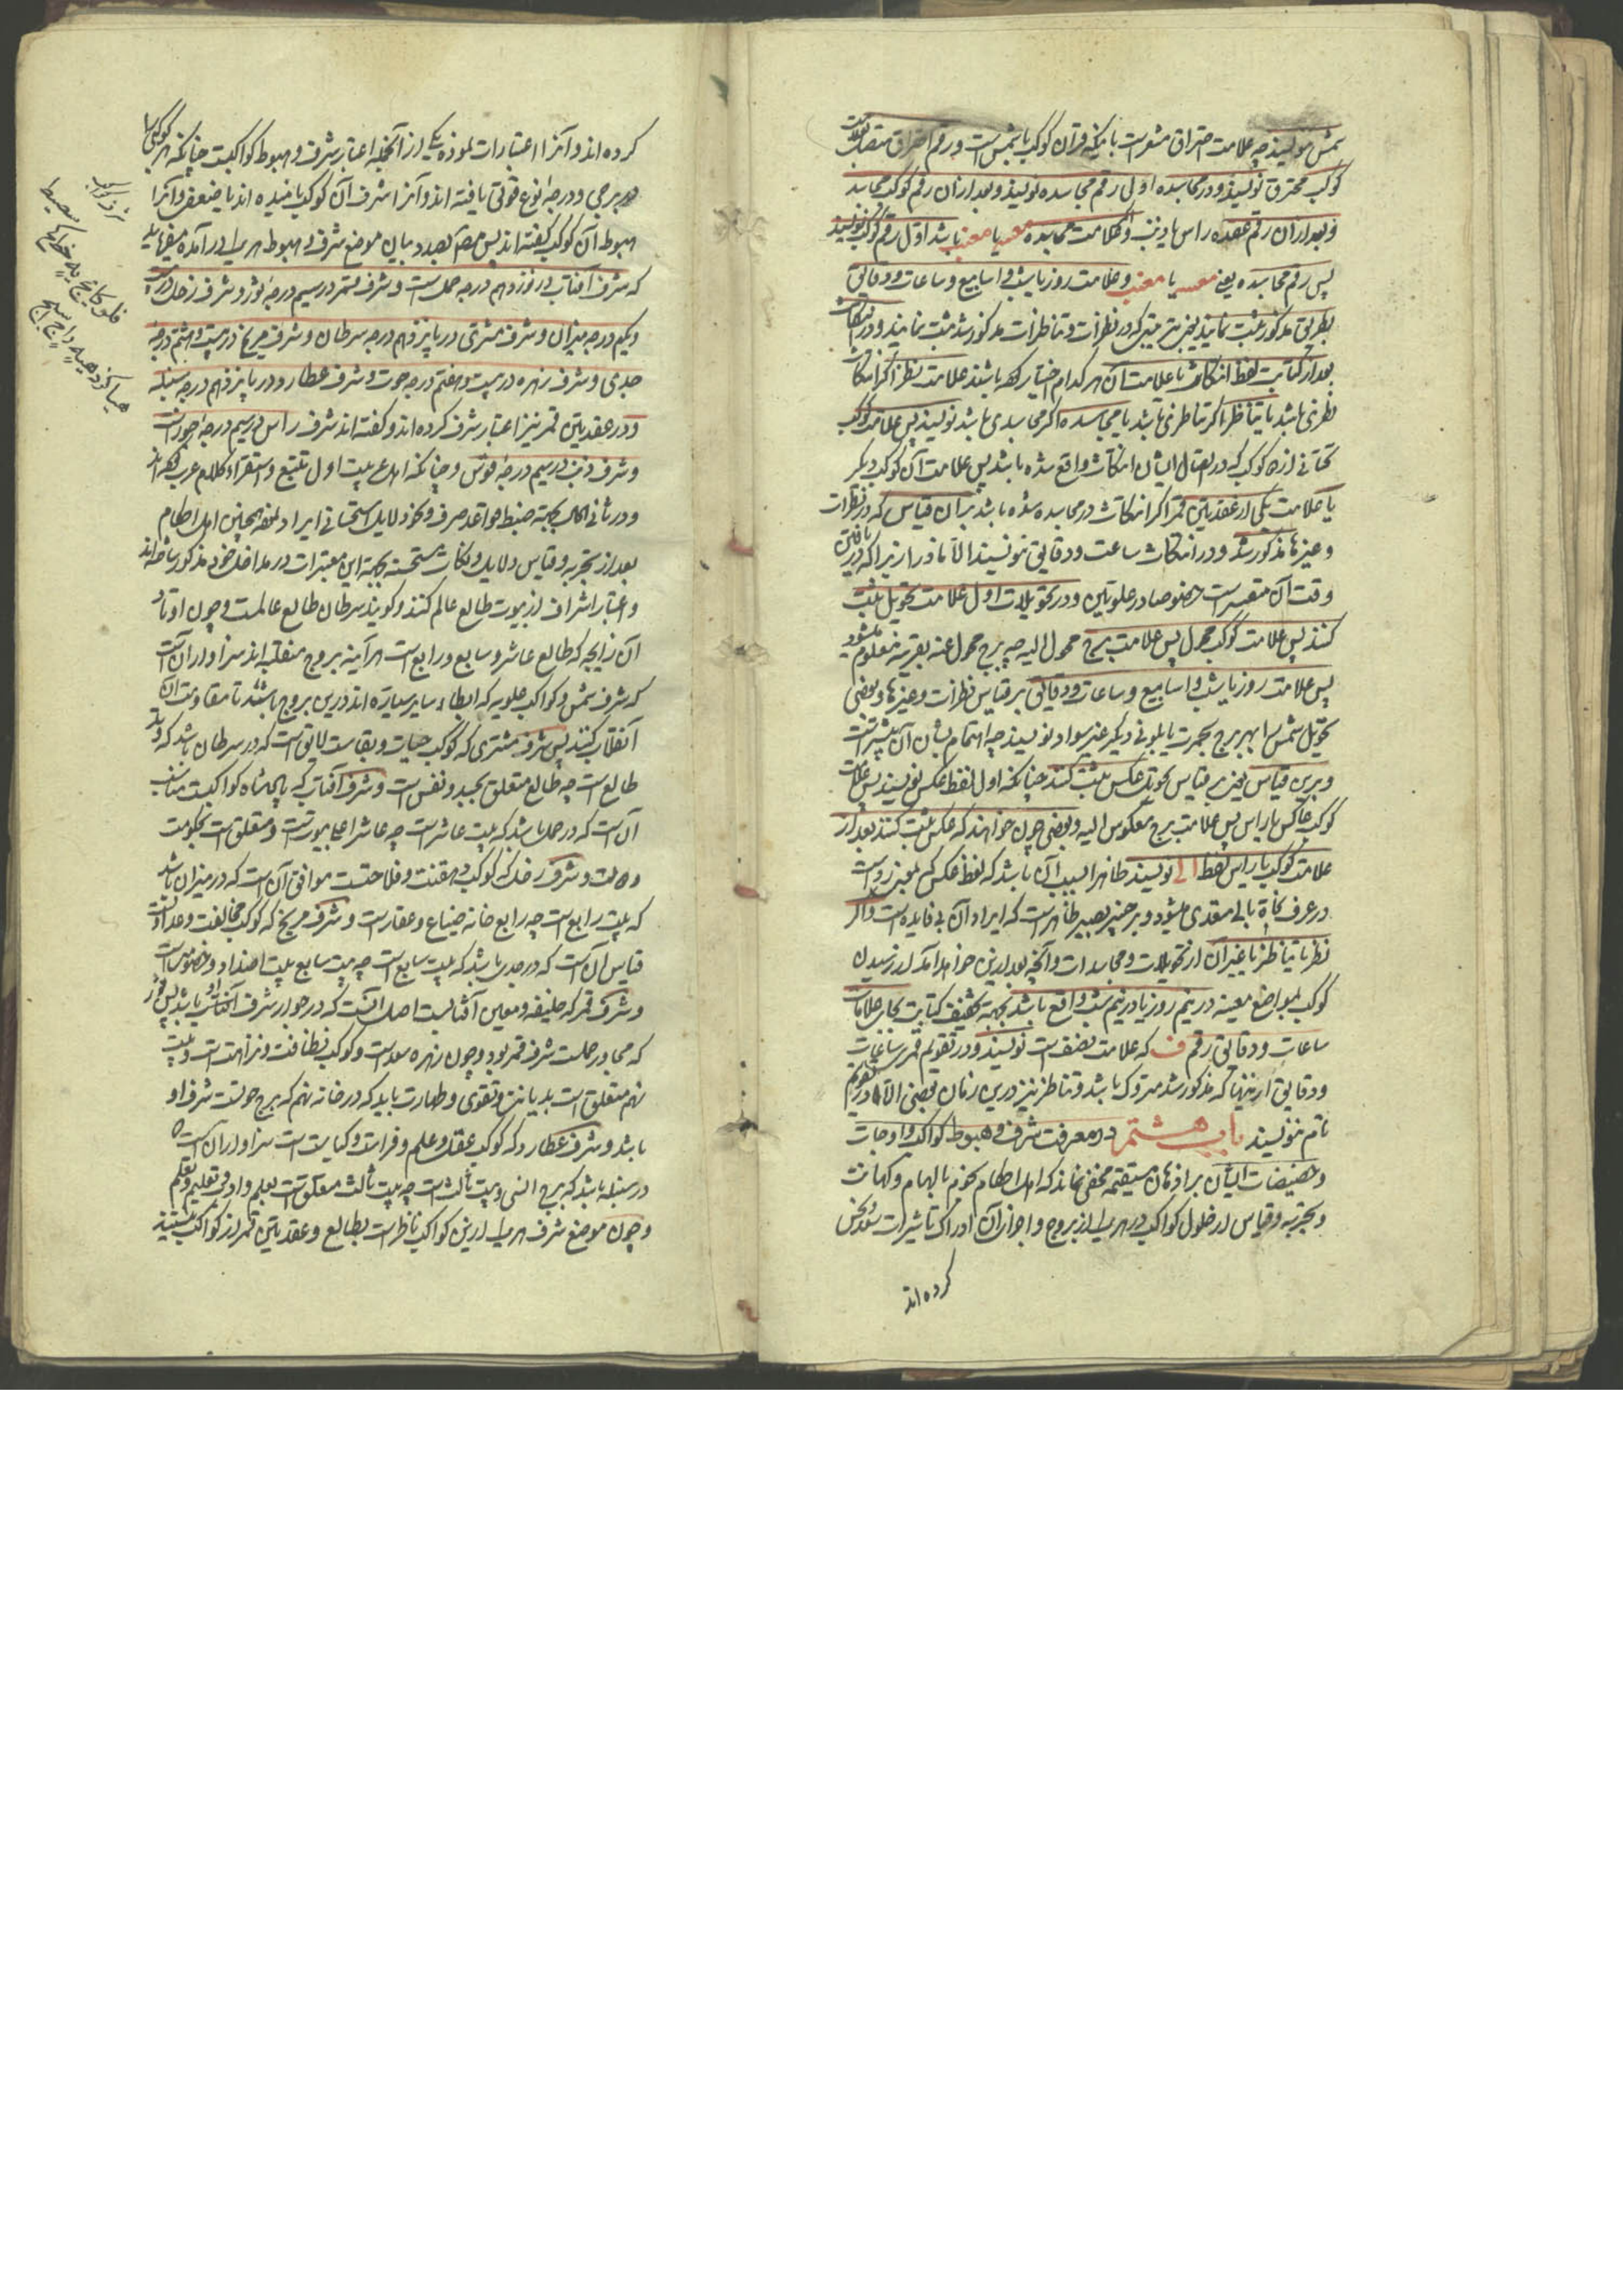 شمس نویسند چه علامت احتراق مشعر است بآنکه قران کوکب با شمس است و رقم احتراق متصل بعلامت
کوکب محترق نویسند و در مجاسده اول رقم مجاسده نویسند و بعد از آن رقم کوکب مجاسد
و بعد از آن رقم عقده راس یا ذنب و اگر علامت مجاسده باشد اول رقم کوکب نویسند
پس رقم مجاسده یعنی یا و علامت روز یا شب و اسابیع و ساعات و دقایق
بطریق مذکور ثبت نمایند یعنی بترتیبی که در نظرات و تناظرات مذکور شد ثبت نمایند و در انتکاث
بعد از کتابت لفظ انتکاث با علامت آن هر کدام اختیار کرده باشند علامت نظر اگر انتکاث
نظری باشد یا تناظر اگر تناظری باشد یا مجاسده اگر مجاسدی باشد نویسند پس علامت کوکب
تحتانی از دو کوکب که در اتصال ایشان انتکاث واقع شده باشد پس علامت آن کوکب دیگر
یا علامت یکی از عقدتین قمر اگر انتکاث در مجاسده شده باشد بر آن قیاس که در نظرات
و غیرها مذکور شد و در انتکاث ساعت و دقایق ننویسند الا نادرا زیرا که دریافتن
وقت آن متعسر است خصوصا در علویتین و در تحویلات اول علامت تحویل ثبت
کنند پس علامت کوکب محول پس علامت برج محمول الیه چه برج محمول عنه بقرینه معلوم میشود
پس علامت روز یا شب و اسابیع و ساعات و دقایق بر قیاس نظرات و غیرها و بعضی
تحویل شمس را بهر برج بحمرت یا بلونی دیگر غیر سواد نویسند چه اهتمام بشان آن بیشتر است
و برین قیاس یعنی بر قیاس تحویل عکس ثبت کنند چنانکه اول لفظ عکس نویسند پس علامت
کوکب عاکس یا راس پس علامت برج معکوس الیه و بعضی چون خواهند که عکس ثبت کنند بعد از
علامت کوکب یا راس لفظ الی نویسند ظاهرا سبب آن باشد که لفظ عکس که بمعنی رد است
در عرف نحاة بالی متعدی میشود و بر خبیر بصیر ظاهر است که ایراد آن بی فایده است و اگر
نظر یا تناظر یا غیر آن از تحویلات و مجاسدات و آنچه بعد ازین خواهد آمد از رسیدن
کوکب بمواضع معینه در نیم روز یا در نیم شب واقع باشد بجهت تخفیف کتابت بجای علامات
ساعات و دقایق رقم ف که علامت نصف است نویسند و در تقویم قمر ساعات
و دقایق از اینها که مذکور شد متروک باشد و تناظر نیز درین زمان بعضی الا در تقویم
تام ننویسند باب هشتم در معرفت شرف و هبوط کواکب و اوجات
و حضیضات ایشان بر اذهان مستقیمه مخفی نماند که اهل احکام نجوم بالهام و کهانت
و تجربه و قیاس از حلول کواکب در هر یک از بروج و اجزاء آن ادراک تاثیرات سعد و نحس
کرده اند
کرده اند و آنرا اعتبارات نموده یکی از آنجمله اعتبار شرف و هبوط کواکبست چنانکه هر کوکبی را
در برجی و درجه نوع قوتی یافته اند و آنرا شرف آن کوکب نامیده اند یا ضعف و آنرا
هبوط آن کوکب گفته اند پس مص بصدد بیان موضع شرف و هبوط هر یک در آمده میفرماید
که شرف آفتاب در نوزدهم درجه حمل است و شرف قمر در سیم درجه ثور و شرف زحل در بیست
و یکم درجه میزان و شرف مشتری در پانزدهم درجه سرطان و شرف مریخ در بیست و هشتم درجه
جدی و شرف زهره در بیست و هفتم درجه حوت و شرف عطارد در پانزدهم درجه سنبله
و در عقدتین قمر نیز اعتبار شرف کرده اند و گفته اند شرف راس در سیم درجه جوزاست
و شرف ذنب در سیم درجه قوس و چنانکه اهل عربیت اول تتبع و استقراء کلام عرب کرده اند
و در ثانی الحال بجهت ضبط قواعد صرف و نحو دلایل استحسانی ایراد نموده همچنین اهل احکام
بعد از تجربه و قیاس دلایل و نکات مستحسنه بجهت این معتبرات در مداخل خود مذکور ساخته اند
و اعتبار اشراف از بیوت طالع عالم کنند و گویند سرطان طالع عالمست و چون اوتاد
آن زایجه که طالع عاشر و سابع و رابع است هر آینه بروج منقلبه اند سزاوار آن است
که شرف شمس و کواکب علویه که ابطاء سایر سیاره اند درین بروج باشند تا مقاومت آن
انقلاب کنند پس شرف مشتری که کوکب حیات و بقاست لایق است که در سرطان باشد که وتد
طالع است چه طالع متعلق بجسد و نفس است و شرف آفتاب که پادشاه کواکبست مناسب
آن است که در حمل باشد که بیت عاشر است چه عاشر اعلی بیوتست و متعلق است بحکومت
و شرف زحل که کوکب دهقنت و فلاحتست موافق آن است که در میزان باشد
که بیت رابع است چه رابع خانه ضیاع و عقار است و شرف مریخ که کوکب مخالفت و عداوتست
قیاس آن است که در جدی باشد که بیت سابع است چه بیت سابع بیت اضداد و خصومت است
و شرف قمر که خلیفه و معین آفتابست اصل آنست که در جوار شرف آفتاب باشد پس ثور
که مجاور حملست شرف قمر بود و چون زهره سعد است و کوکب نظافت و نزاهت است و بیت
نهم متعلق است بدیانت و تقوی و طهارت باید که در خانه نهم که برج حوتست شرف او
باشد و شرف عطارد که کوکب عقل و علم و فراست و کتابت است سزاوار آن است
در سنبله باشد که برج انسی و بیت ثالث است چه بیت ثالث متعلق است بعلم و ادب و تعلیم و تعلم
و چون موضع شرف هر یک ازین کواکب ناظر است بطالع و عقدتین قمر از کواکب نیستند